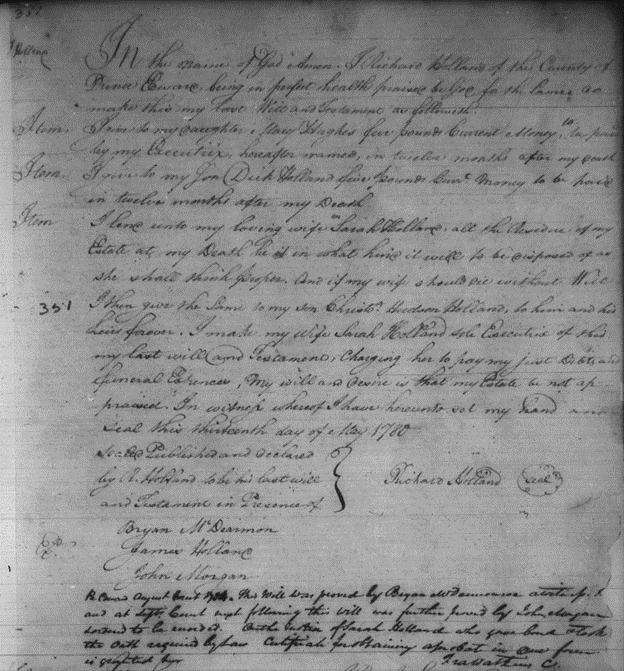 351
Holland
In the name of God Amen. I Richard Holland of the County of
Prince Edward, being in perfect health praised be God for the same do
make this my last Will and Testament as followeth
Item. I give to my daughter Mary Hughes five pounds Current Money, to be paid
by my Executrix, hereafter named, in twelve months after my death
Item. I give to my Son Dick Holland five pounds Curt. Money to be paid
in twelve months after my Death
Item I lend unto my loving wife Sarah Holland, all the Residue of my
Estate at my Death be it in what kind it will to be disposed of as
she shall think proper. And if my wife should die without Will
351 I then give the Same to my son Christr. Hudson Holland, to him and his
heirs forever. I make my wife Sarah Holland sole Executrix of this
my last will and Testament, Charging her to pay my just Debts and
funeral Expences, My will and desire is that my Estate be not ap
praised. In witness whereof I have hereunto set my hand and
Seal this thirteenth day of May 1780
Sealed Published and declared
by R. Holland to be his last will
and Testament in Presence of
Richard Holland Seal
Bryan McDearmon
James Holland
John Morgan
This Will was proved by Bryan McDearmon a witness
and at Court next following this will was further proved by John Morgan
ordered to be recorded. On the motion of Sarah Holland who gave bond & took
the Oath required by law Certificate for obtaining a probat in due form
is granted her
Fra Watkins